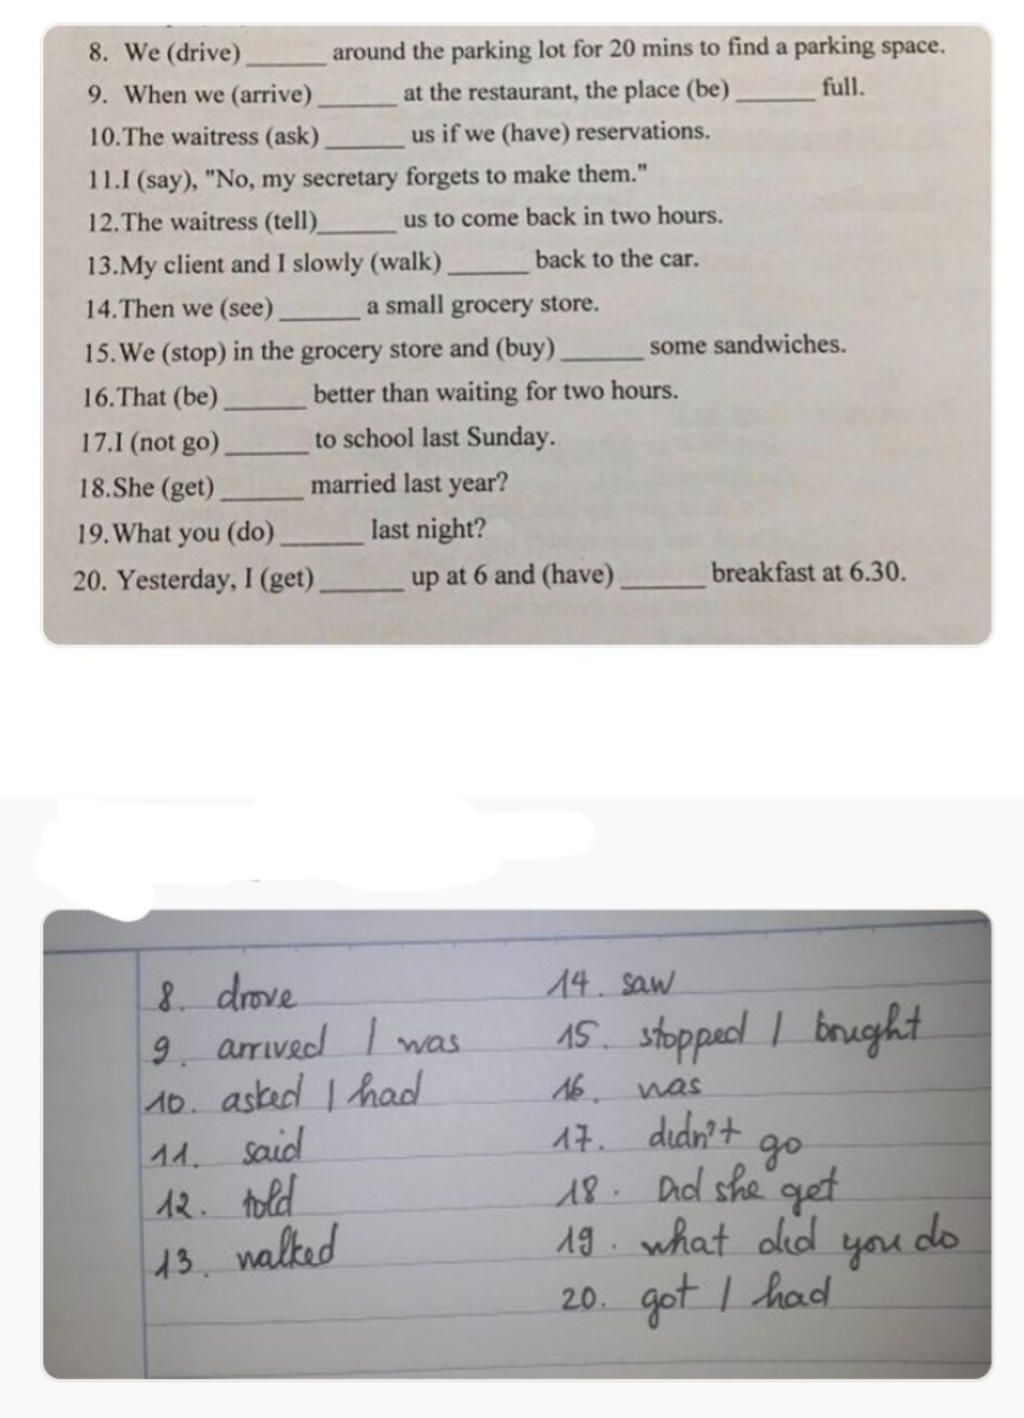 8. We (drive) ______ around the parking lot for 20 mins to find a parking space.
9. When we (arrive) ______ at the restaurant, the place (be) ______ full.
10.The waitress (ask) ______ us if we (have) reservations.
11.I (say), "No, my secretary forgets to make them."
12.The waitress (tell)______ us to come back in two hours.
13.My client and I slowly (walk) ______ back to the car.
14.Then we (see) ______ a small grocery store.
15.We (stop) in the grocery store and (buy) ______ some sandwiches.
16.That (be) ______ better than waiting for two hours.
17.I (not go) ______ to school last Sunday.
18.She (get) ______ married last year?
19.What you (do) ______ last night?
20. Yesterday, I (get) ______ up at 6 and (have) ______ breakfast at 6.30.
8. drove
9. arrived / was
10. asked / had
11. said
12. told
13. walked
14. saw
15. stopped / bought
16. was
17. didn't go
18. Did she get
19. what did you do
20. got / had